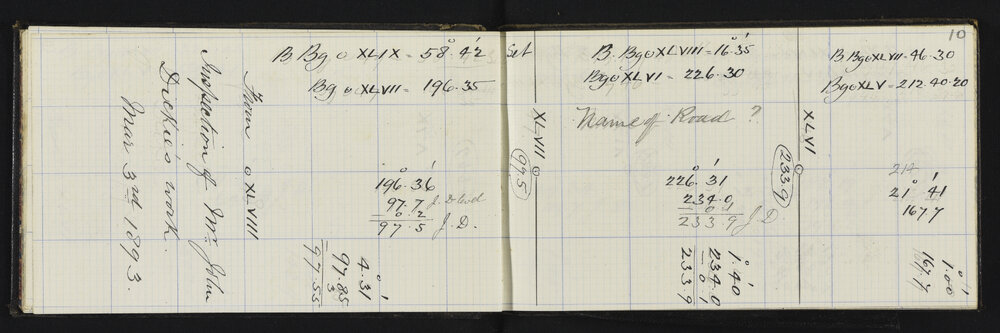 10
B Bg o XLIX = 58° 42'
Bg o XLVII = 196.35
From o XLVIII
Inspection of Mr. John
Dickie's work.
Mar 3rd 1893.
196° 36'
97.7 J.D.
0.2
97.5 J.D.
4° 31'
97.85
3
97.55
Set
B. Bg o XLVIII = 16° 35'
Bg o XLVI = 226.30
XLVII
97.5
Name of Road ?
226° 31'
234.0
0.1
233.9 J.D.
1° 40'
234.0
0.1
233.9
B Bg o XLVII = 46.30
Bg o XLV = 212.40.20
XLVI
233.9
214
21° 41'
167.7
1° 00'
167.7